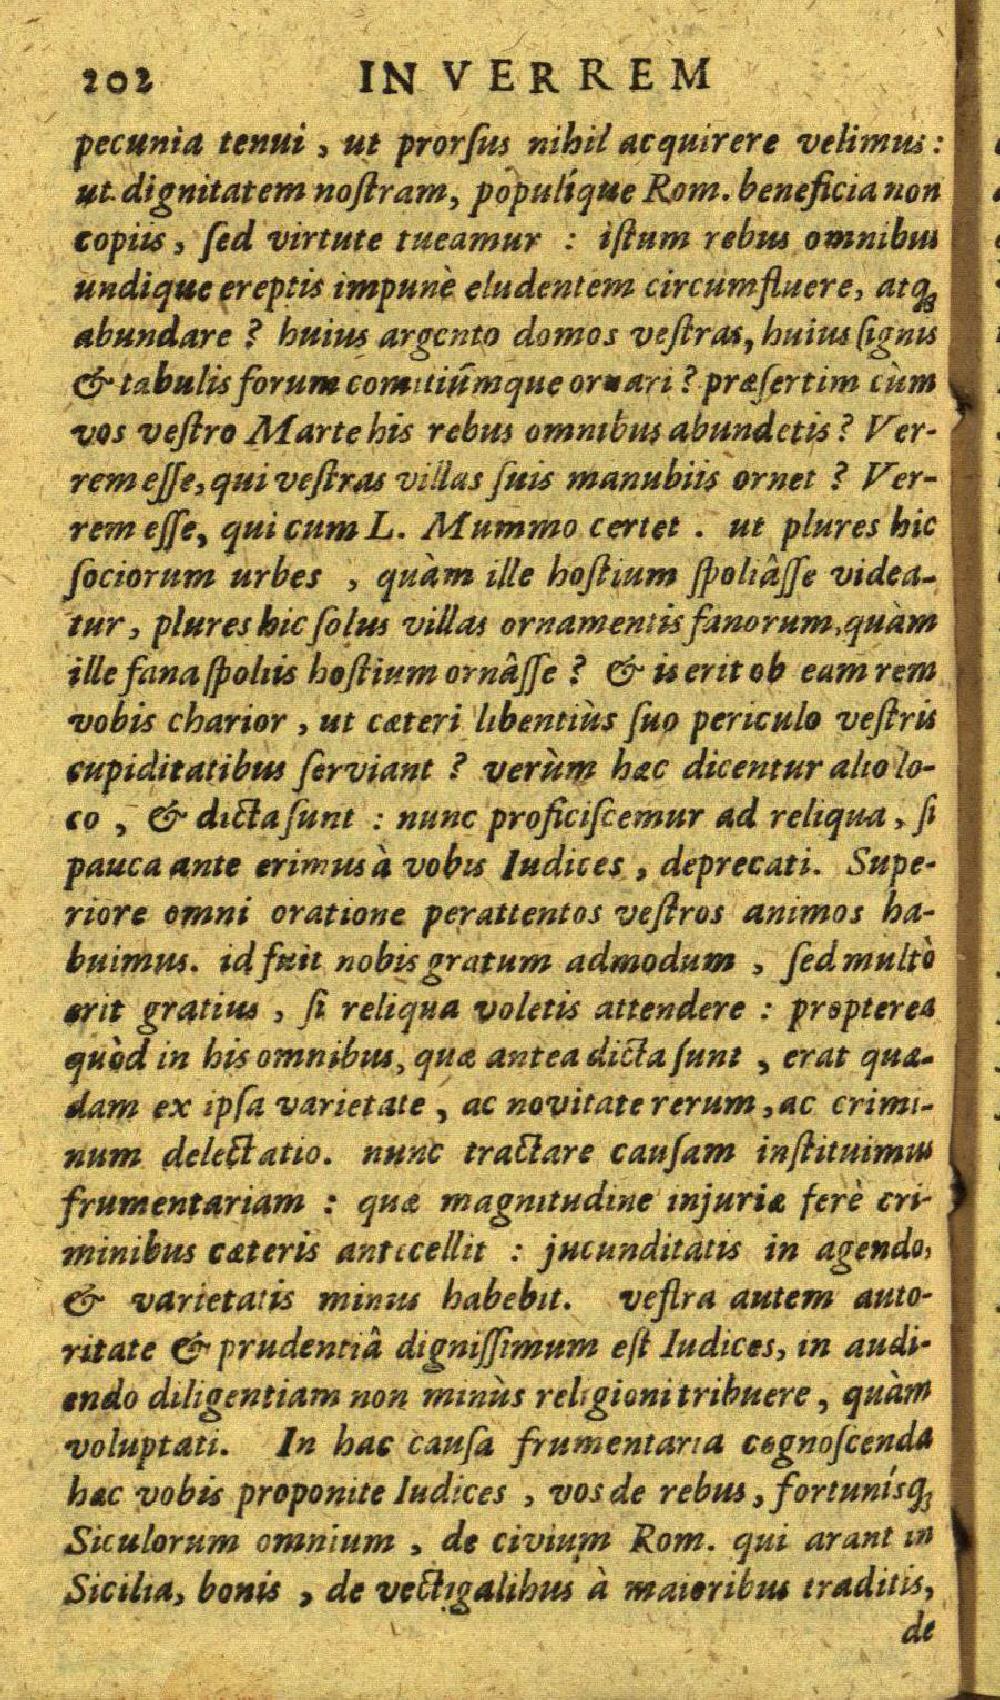 202 IN VERREM
pecunia tenui, ut prorſus nihil acquirere velimus:
ut dignitatem noſtram, populíque Rom. beneficia non
copiis, ſed virtute tueamur : iſtum rebus omnibus
undique ereptis impunè eludentem circumfluere, atq;
abundare ? huius argento domos veſtras, huius ſignis
& tabulis forum comitiúmque ornari ? præſertim cùm
vos veſtro Marte his rebus omnibus abundetis ? Ver-
rem eſſe, qui veſtras villas ſuis manubiis ornet ? Ver-
rem eſſe, qui cum L. Mummo certet . ut plures hic
ſociorum urbes , quàm ille hoſtium ſpoliâſſe videa-
tur, plures hic ſolus villas ornamentis fanorum, quàm
ille fana ſpoliis hoſtium ornâſſe ? & is erit ob eam rem
vobis charior, ut cæteri libentiùs ſuo periculo veſtris
cupiditatibus ſerviant ? verùm hæc dicentur alio lo-
co, & dicta ſunt : nunc proficiſcemur ad reliqua, ſi
pauca ante erimus à vobis Iudices, deprecati. Supe-
riore omni oratione perattentos veſtros animos ha-
buimus. id fuit nobis gratum admodum , ſed multò
erit gratius, ſi reliqua voletis attendere : propterea
quòd in his omnibus, quæ antea dicta ſunt , erat quæ-
dam ex ipſa varietate, ac novitate rerum, ac crimi-
num delectatio. nunc tractare cauſam inſtituimus
frumentariam : quæ magnitudine injuriæ ferè cri-
minibus cæteris antecellit : jucunditatis in agendo,
& varietatis minus habebit. veſtra autem auto-
ritate & prudentiâ digniſſimum eſt Iudices, in audi-
endo diligentiam non minùs religioni tribuere, quàm
voluptati. In hac cauſa frumentaria cognoſcenda
hæc vobis proponite Iudices , vos de rebus, fortunísq;
Siculorum omnium , de civium Rom. qui arant in
Sicilia, bonis , de vectigalibus à maioribus traditis,
de